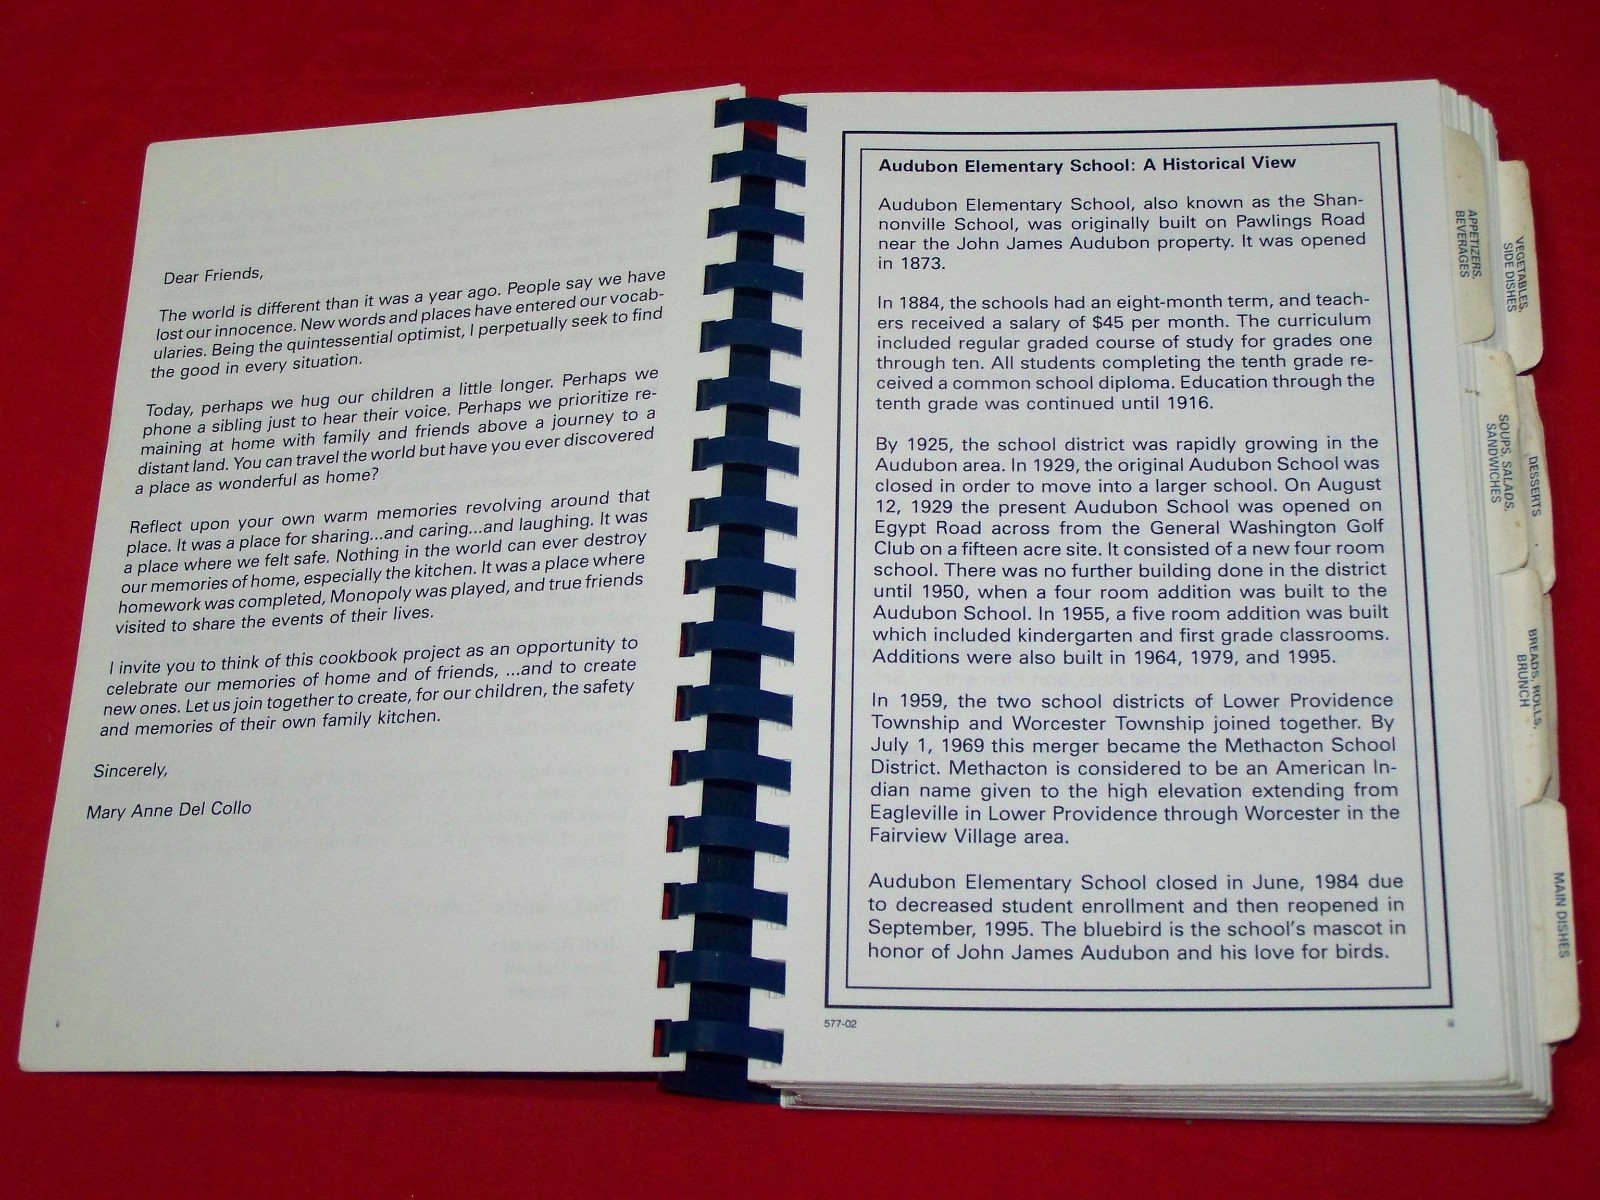 Dear Friends,
The world is different than it was a year ago. People say we have
lost our innocence. New words and places have entered our vocab-
ularies. Being the quintessential optimist, I perpetually seek to find
the good in every situation.
Today, perhaps we hug our children a little longer. Perhaps we
phone a sibling just to hear their voice. Perhaps we prioritize re-
maining at home with family and friends above a journey to a
distant land. You can travel the world but have you ever discovered
a place as wonderful as home?
Reflect upon your own warm memories revolving around that
place. It was a place for sharing...and caring...and laughing. It was
a place where we felt safe. Nothing in the world can ever destroy
our memories of home, especially the kitchen. It was a place where
homework was completed, Monopoly was played, and true friends
visited to share the events of their lives.
I invite you to think of this cookbook project as an opportunity to
celebrate our memories of home and of friends, ...and to create
new ones. Let us join together to create, for our children, the safety
and memories of their own family kitchen.
Sincerely,
Mary Anne Del Collo
ii
Audubon Elementary School: A Historical View
Audubon Elementary School, also known as the Shan-
nonville School, was originally built on Pawlings Road
near the John James Audubon property. It was opened
in 1873.
In 1884, the schools had an eight-month term, and teach-
ers received a salary of $45 per month. The curriculum
included regular graded course of study for grades one
through ten. All students completing the tenth grade re-
ceived a common school diploma. Education through the
tenth grade was continued until 1916.
By 1925, the school district was rapidly growing in the
Audubon area. In 1929, the original Audubon School was
closed in order to move into a larger school. On August
12, 1929 the present Audubon School was opened on
Egypt Road across from the General Washington Golf
Club on a fifteen acre site. It consisted of a new four room
school. There was no further building done in the district
until 1950, when a four room addition was built to the
Audubon School. In 1955, a five room addition was built
which included kindergarten and first grade classrooms.
Additions were also built in 1964, 1979, and 1995.
In 1959, the two school districts of Lower Providence
Township and Worcester Township joined together. By
July 1, 1969 this merger became the Methacton School
District. Methacton is considered to be an American In-
dian name given to the high elevation extending from
Eagleville in Lower Providence through Worcester in the
Fairview Village area.
Audubon Elementary School closed in June, 1984 due
to decreased student enrollment and then reopened in
September, 1995. The bluebird is the school's mascot in
honor of John James Audubon and his love for birds.
577-02
iii
APPETIZERS,
BEVERAGES
VEGETABLES,
SIDE DISHES
SOUPS, SALADS,
SANDWICHES
DESSERTS
BREADS, ROLLS,
BRUNCH
MAIN DISHES